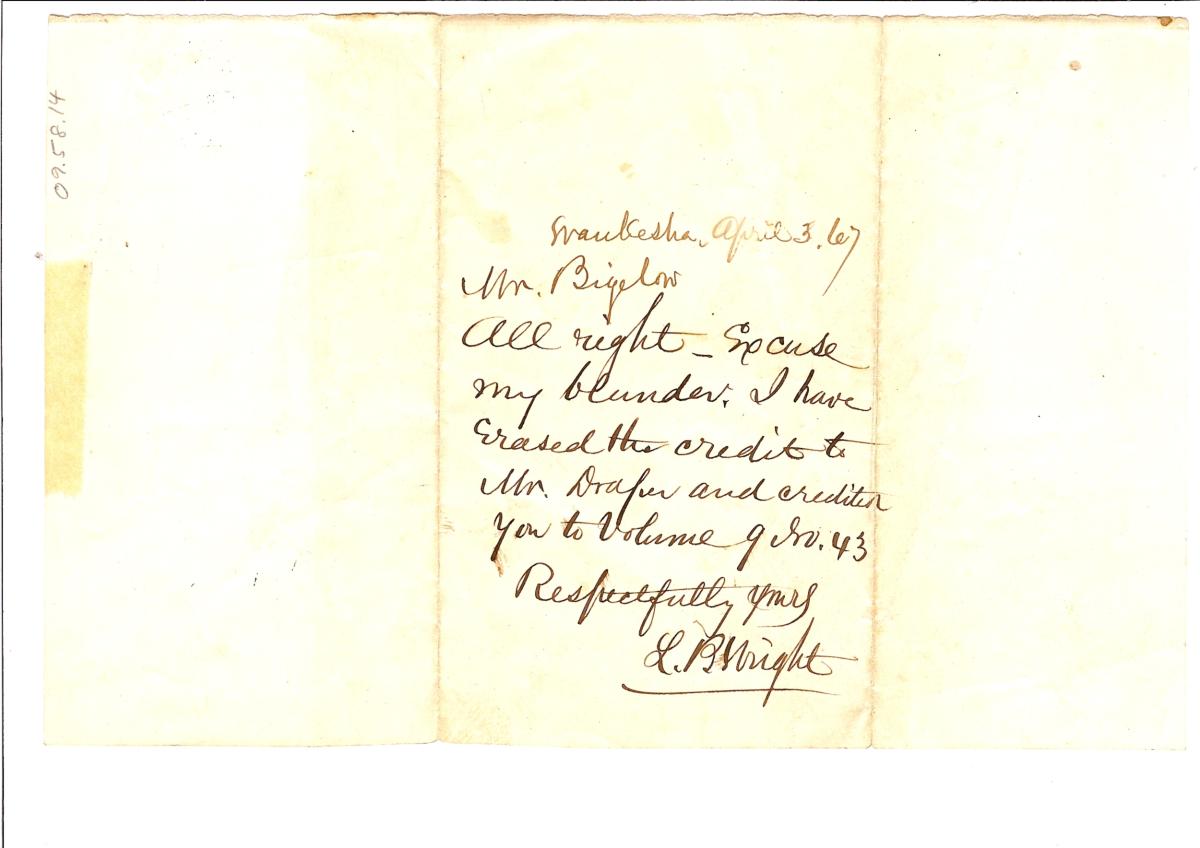 09.58.14
Waukesha, April 3. 67
Mr. Bigelow
All right – Excuse
my blunder. I have
Erased the credit to
Mr. Draper and credited
you to Volume 9 No. 43
Respectfully yours
L. B. Wright